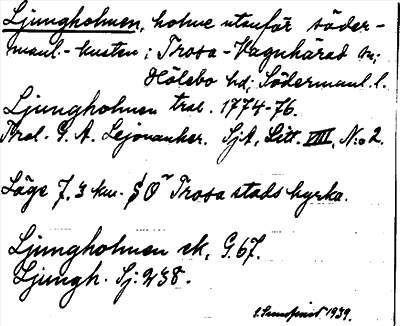 Ljungholmen, holme utanför söder-
manl.-kusten; Trosa-Vagnhärad sn;
Hölebo hd; Södermanl. l.
Ljungholmen tral. 1774-76.
Thol. G. A. Lejonanker. SjA, Litt. VIII, N:o 2.
Läge 7,3 km. SO Trosa stads kyrka.
Ljungholmen ek. G. 67.
Ljungh. Sj: 238.
1939.